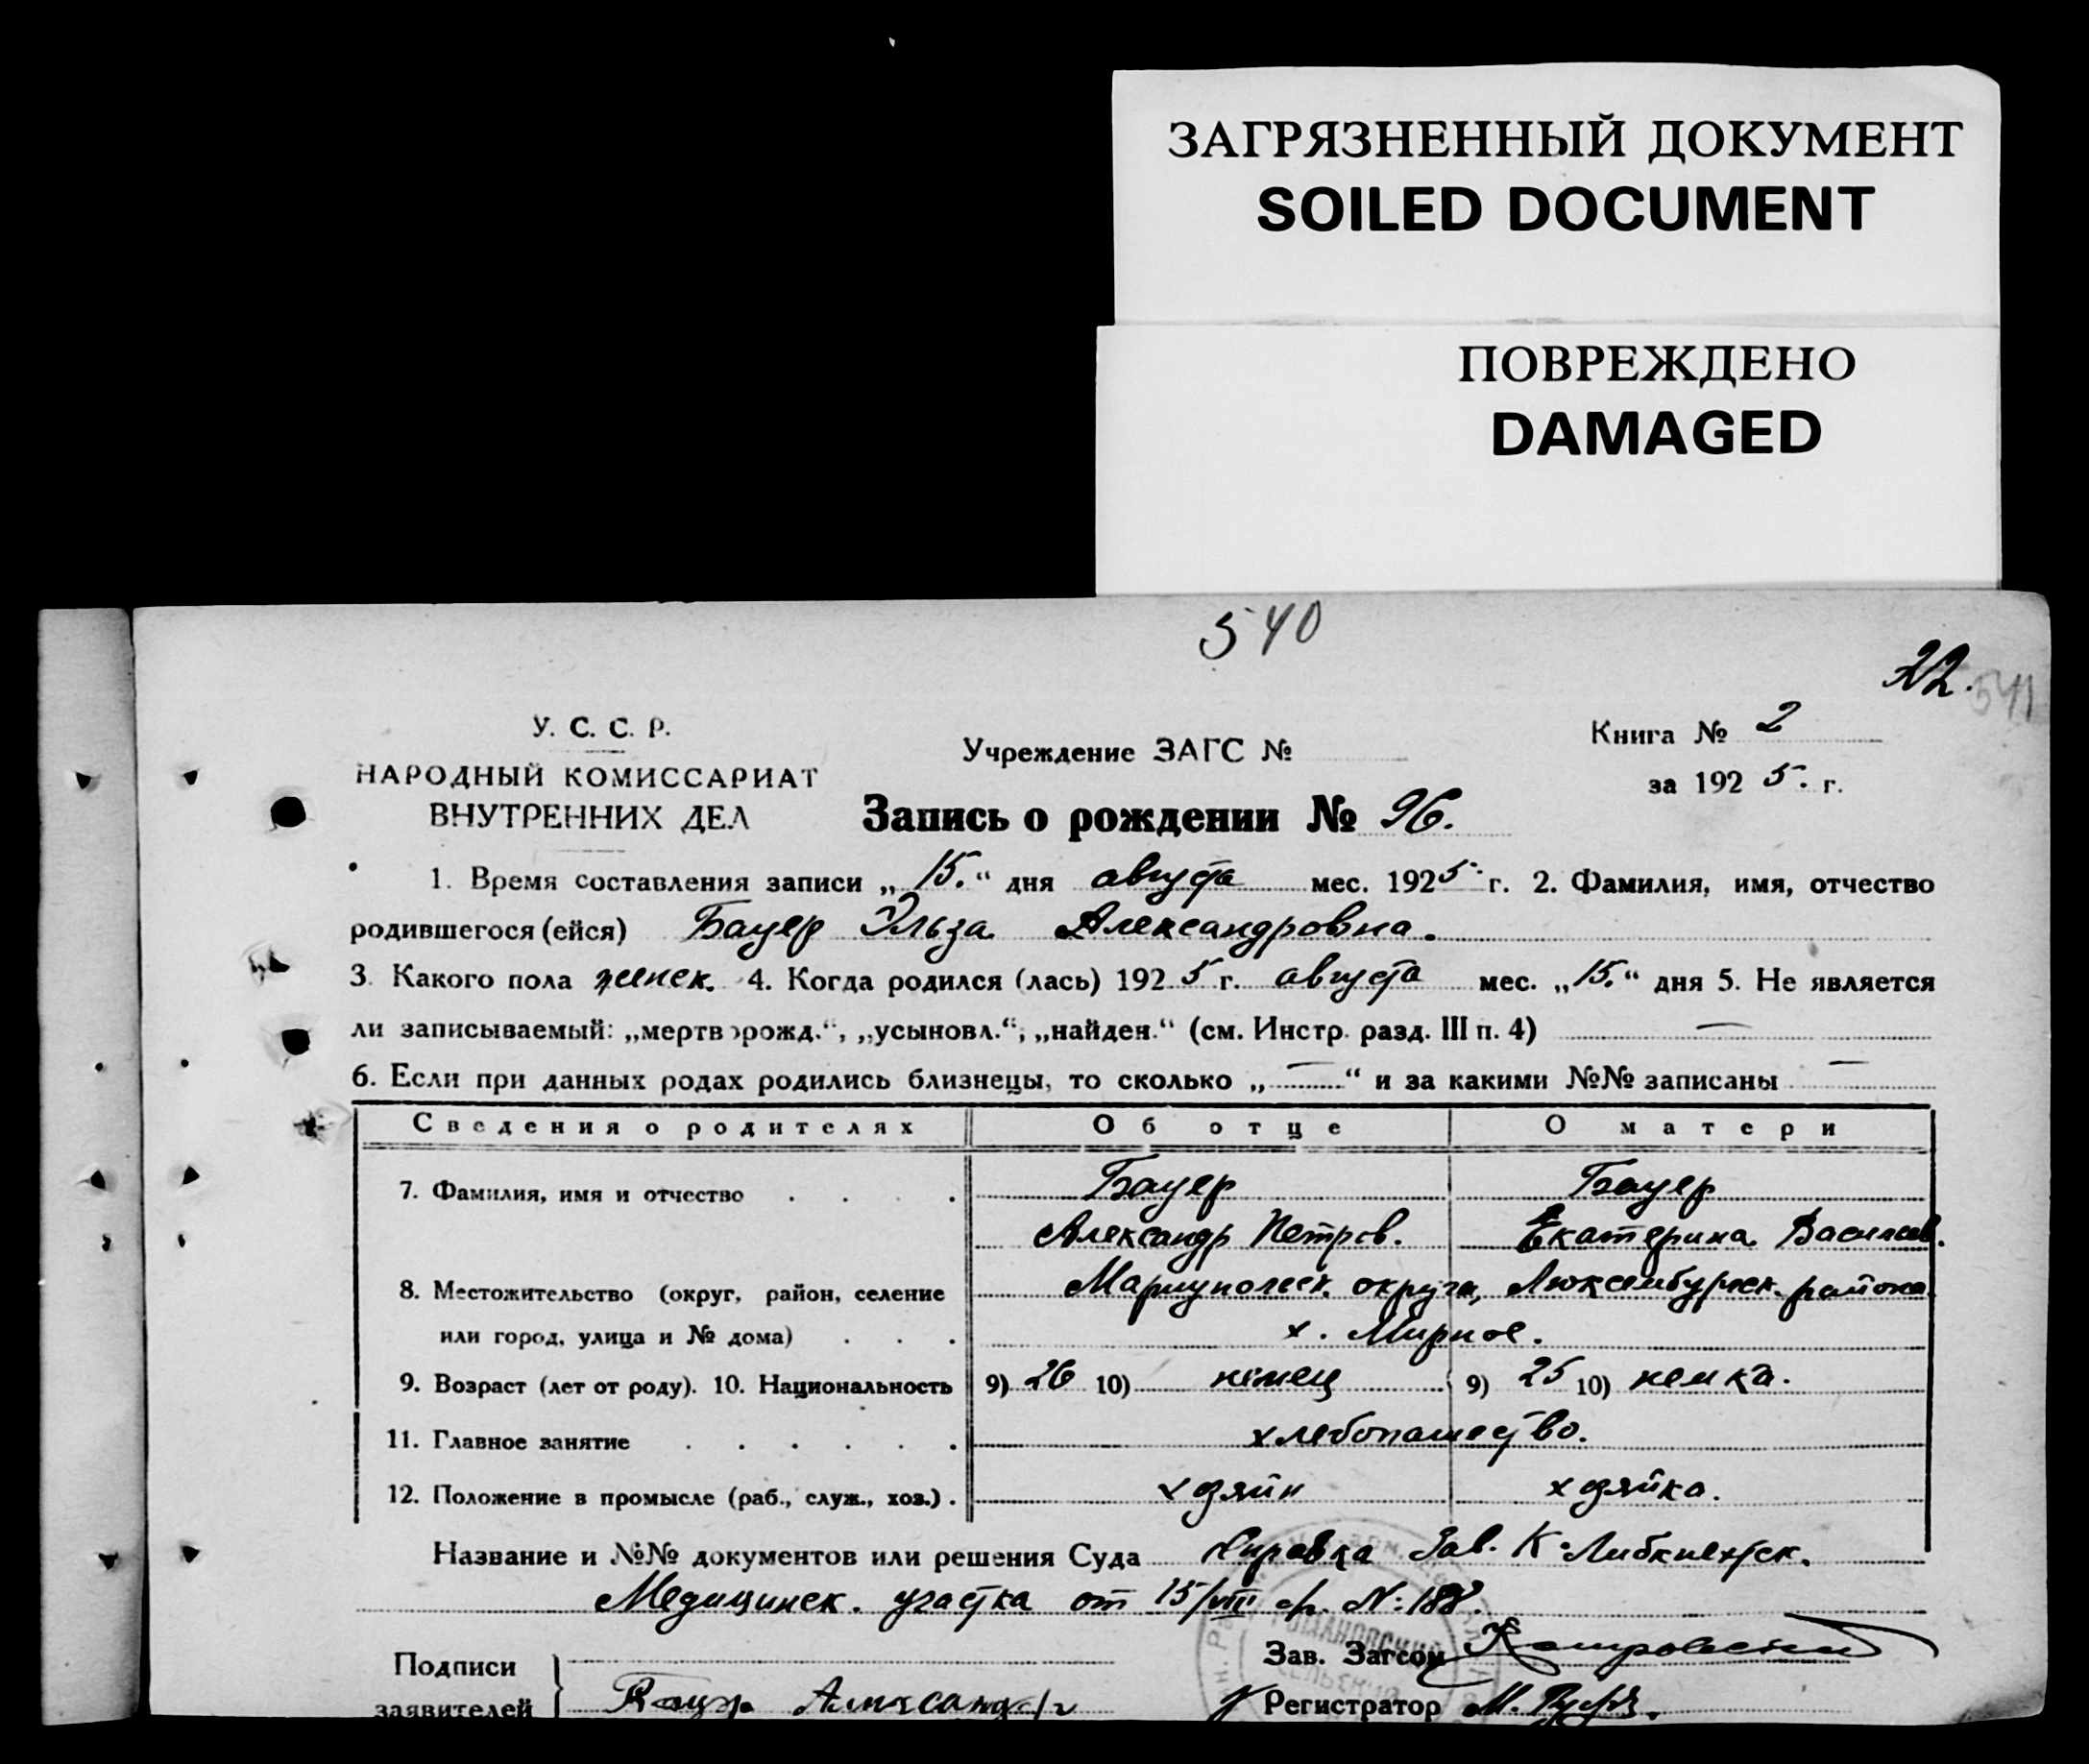 ЗАГРЯЗНЕННЫЙ ДОКУМЕНТ
SOILED DOCUMENT
ПОВРЕЖДЕНО
DAMAGED
540
22. 541
У. С. С. Р.
НАРОДНЫЙ КОМИССАРИАТ
ВНУТРЕННИХ ДЕЛ
Учреждение ЗАГС №
Книга № 2
за 1925. г.
Запись о рождении № 96.
1. Время составления записи „15.“ дня августа мес. 1925 г. 2. Фамилия, имя, отчество
родившегося (ейся) Бауер Эльза Александровна.
3. Какого пола женск. 4. Когда родился (лась) 1925 г. августа мес. „15.“ дня 5. Не является
ли записываемый: „мертворожд.“, „усыновл.“, „найден.“ (см. Инстр. разд. III п. 4) —
6. Если при данных родах родились близнецы, то сколько „—“ и за какими №№ записаны —
Сведения о родителях Об отце О матери
7. Фамилия, имя и отчество . . . . Бауер Бауер
Александр Петров. Екатерина Васильев.
8. Местожительство (округ, район, селение Мариупольск. округа, Люксембургск. района
или город, улица и № дома) . . . х. Мирное.
9. Возраст (лет от роду). 10. Национальность 9) 26 10) немец 9) 25 10) немка.
11. Главное занятие . . . . . . хлебопашество.
12. Положение в промысле (раб., служ., хоз.) . хозяин хозяйка.
Название и №№ документов или решения Суда Справка Зав. К-Либкнехтск.
Медицинск. участка от 15/VIII с/г. N: 188.
Подписи
заявителей } Бауер Александр
Зав. Загсом
Регистратор М.